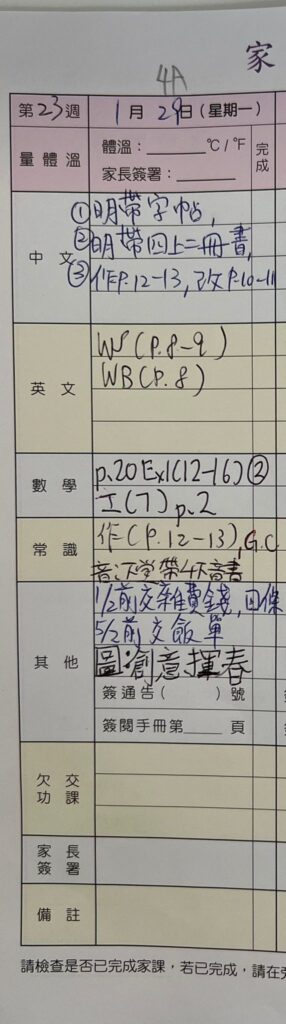 家
4A
第23週 1月29日(星期一)
量體溫 體溫:______ °C/°F 完成
家長簽署:______
中文 ①明帶字帖,
②明帶四上二冊書,
③作P.12-13,改P.10-11
英文 WS(P.8-9)
WB(P.8)
數學 p.20 Ex1(12-16)②
工(7) p.2
常識 作(P.12-13), G.C.
音下堂帶4下音書
其他 1/2前交雜費錢,回條
5/2前交飯單
圖:創意揮春
簽通告( )號
簽閱手冊第____頁
欠交功課
家長簽署
備註
請檢查是否已完成家課,若已完成,請在